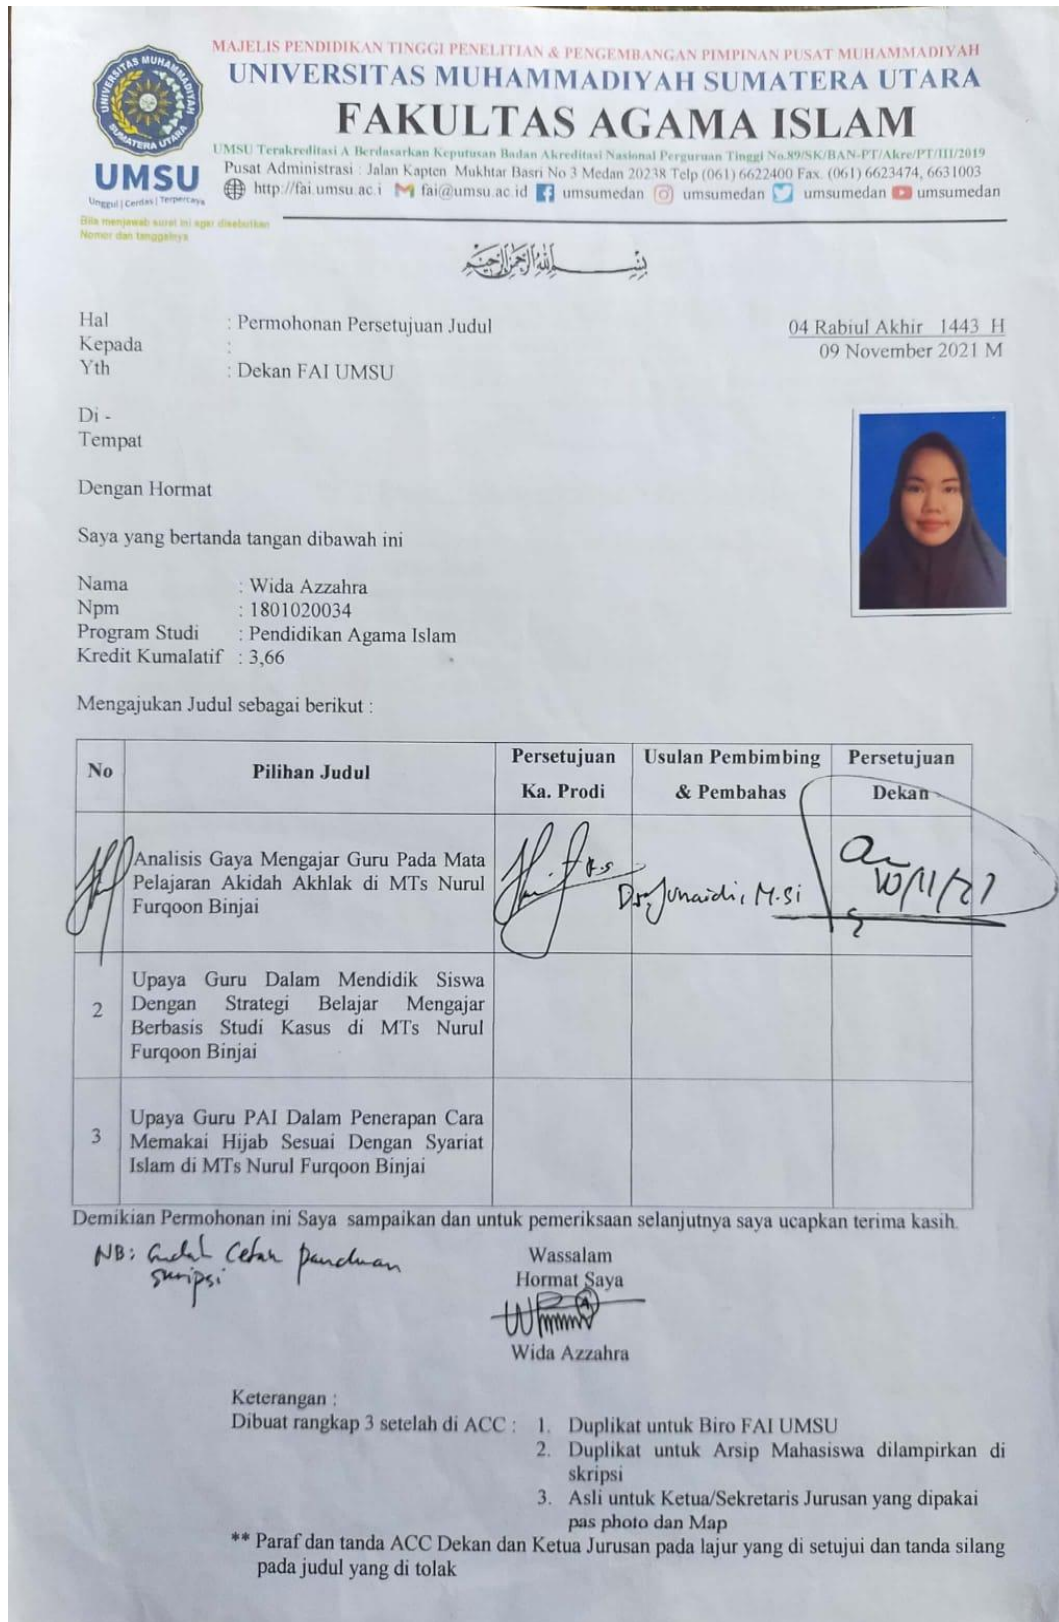 MAJELIS PENDIDIKAN TINGGI PENELITIAN & PENGEMBANGAN PIMPINAN PUSAT MUHAMMADIYAH
UNIVERSITAS MUHAMMADIYAH SUMATERA UTARA
FAKULTAS AGAMA ISLAM
UMSU Terakreditasi A Berdasarkan Keputusan Badan Akreditasi Nasional Perguruan Tinggi No.89/SK/BAN-PT/Akre/PT/III/2019
Pusat Administrasi : Jalan Kapten Mukhtar Basri No 3 Medan 20238 Telp (061) 6622400 Fax. (061) 6623474, 6631003
http://fai.umsu.ac.i fai@umsu.ac.id umsumedan umsumedan umsumedan umsumedan
UNIVERSITAS MUHAMMADIYAH
SUMATERA UTARA
UMSU
Unggul | Cerdas | Terpercaya
Bila menjawab surat ini agar disebutkan
Nomor dan tanggalnya
بسم الله الرحمن الرحيم
Hal : Permohonan Persetujuan Judul
04 Rabiul Akhir 1443 H
Kepada :
09 November 2021 M
Yth : Dekan FAI UMSU
Di -
Tempat
Dengan Hormat
Saya yang bertanda tangan dibawah ini
Nama : Wida Azzahra
Npm : 1801020034
Program Studi : Pendidikan Agama Islam
Kredit Kumalatif : 3,66
Mengajukan Judul sebagai berikut :
No
Pilihan Judul
Persetujuan
Ka. Prodi
Usulan Pembimbing
& Pembahas
Persetujuan
Dekan
Analisis Gaya Mengajar Guru Pada Mata
Pelajaran Akidah Akhlak di MTs Nurul
Furqoon Binjai
Dr. Junaidi, M.Si
10/11/21
2
Upaya Guru Dalam Mendidik Siswa
Dengan Strategi Belajar Mengajar
Berbasis Studi Kasus di MTs Nurul
Furqoon Binjai
3
Upaya Guru PAI Dalam Penerapan Cara
Memakai Hijab Sesuai Dengan Syariat
Islam di MTs Nurul Furqoon Binjai
Demikian Permohonan ini Saya sampaikan dan untuk pemeriksaan selanjutnya saya ucapkan terima kasih.
NB: Cetak panduan
Wassalam
Hormat Saya
Wida Azzahra
Keterangan :
Dibuat rangkap 3 setelah di ACC : 1. Duplikat untuk Biro FAI UMSU
2. Duplikat untuk Arsip Mahasiswa dilampirkan di
skripsi
3. Asli untuk Ketua/Sekretaris Jurusan yang dipakai
pas photo dan Map
** Paraf dan tanda ACC Dekan dan Ketua Jurusan pada lajur yang di setujui dan tanda silang
pada judul yang di tolak